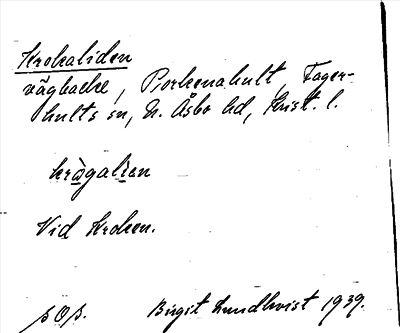 Krokaliden
vägbacke, Porkenahult, Fager-
hults sn, N. Åsbo hd, Krist. l.
krògalien
Vid Kroken.
Birgit Lundkvist 1939.